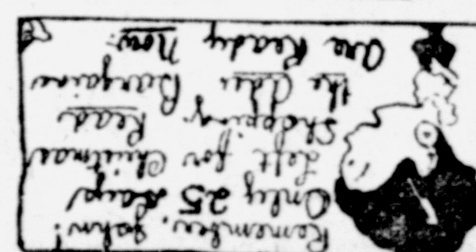 Remember, John!
Only 25 days
Left for Christmas
Shopping. Read
the Adds Bargains
are Ready Now.